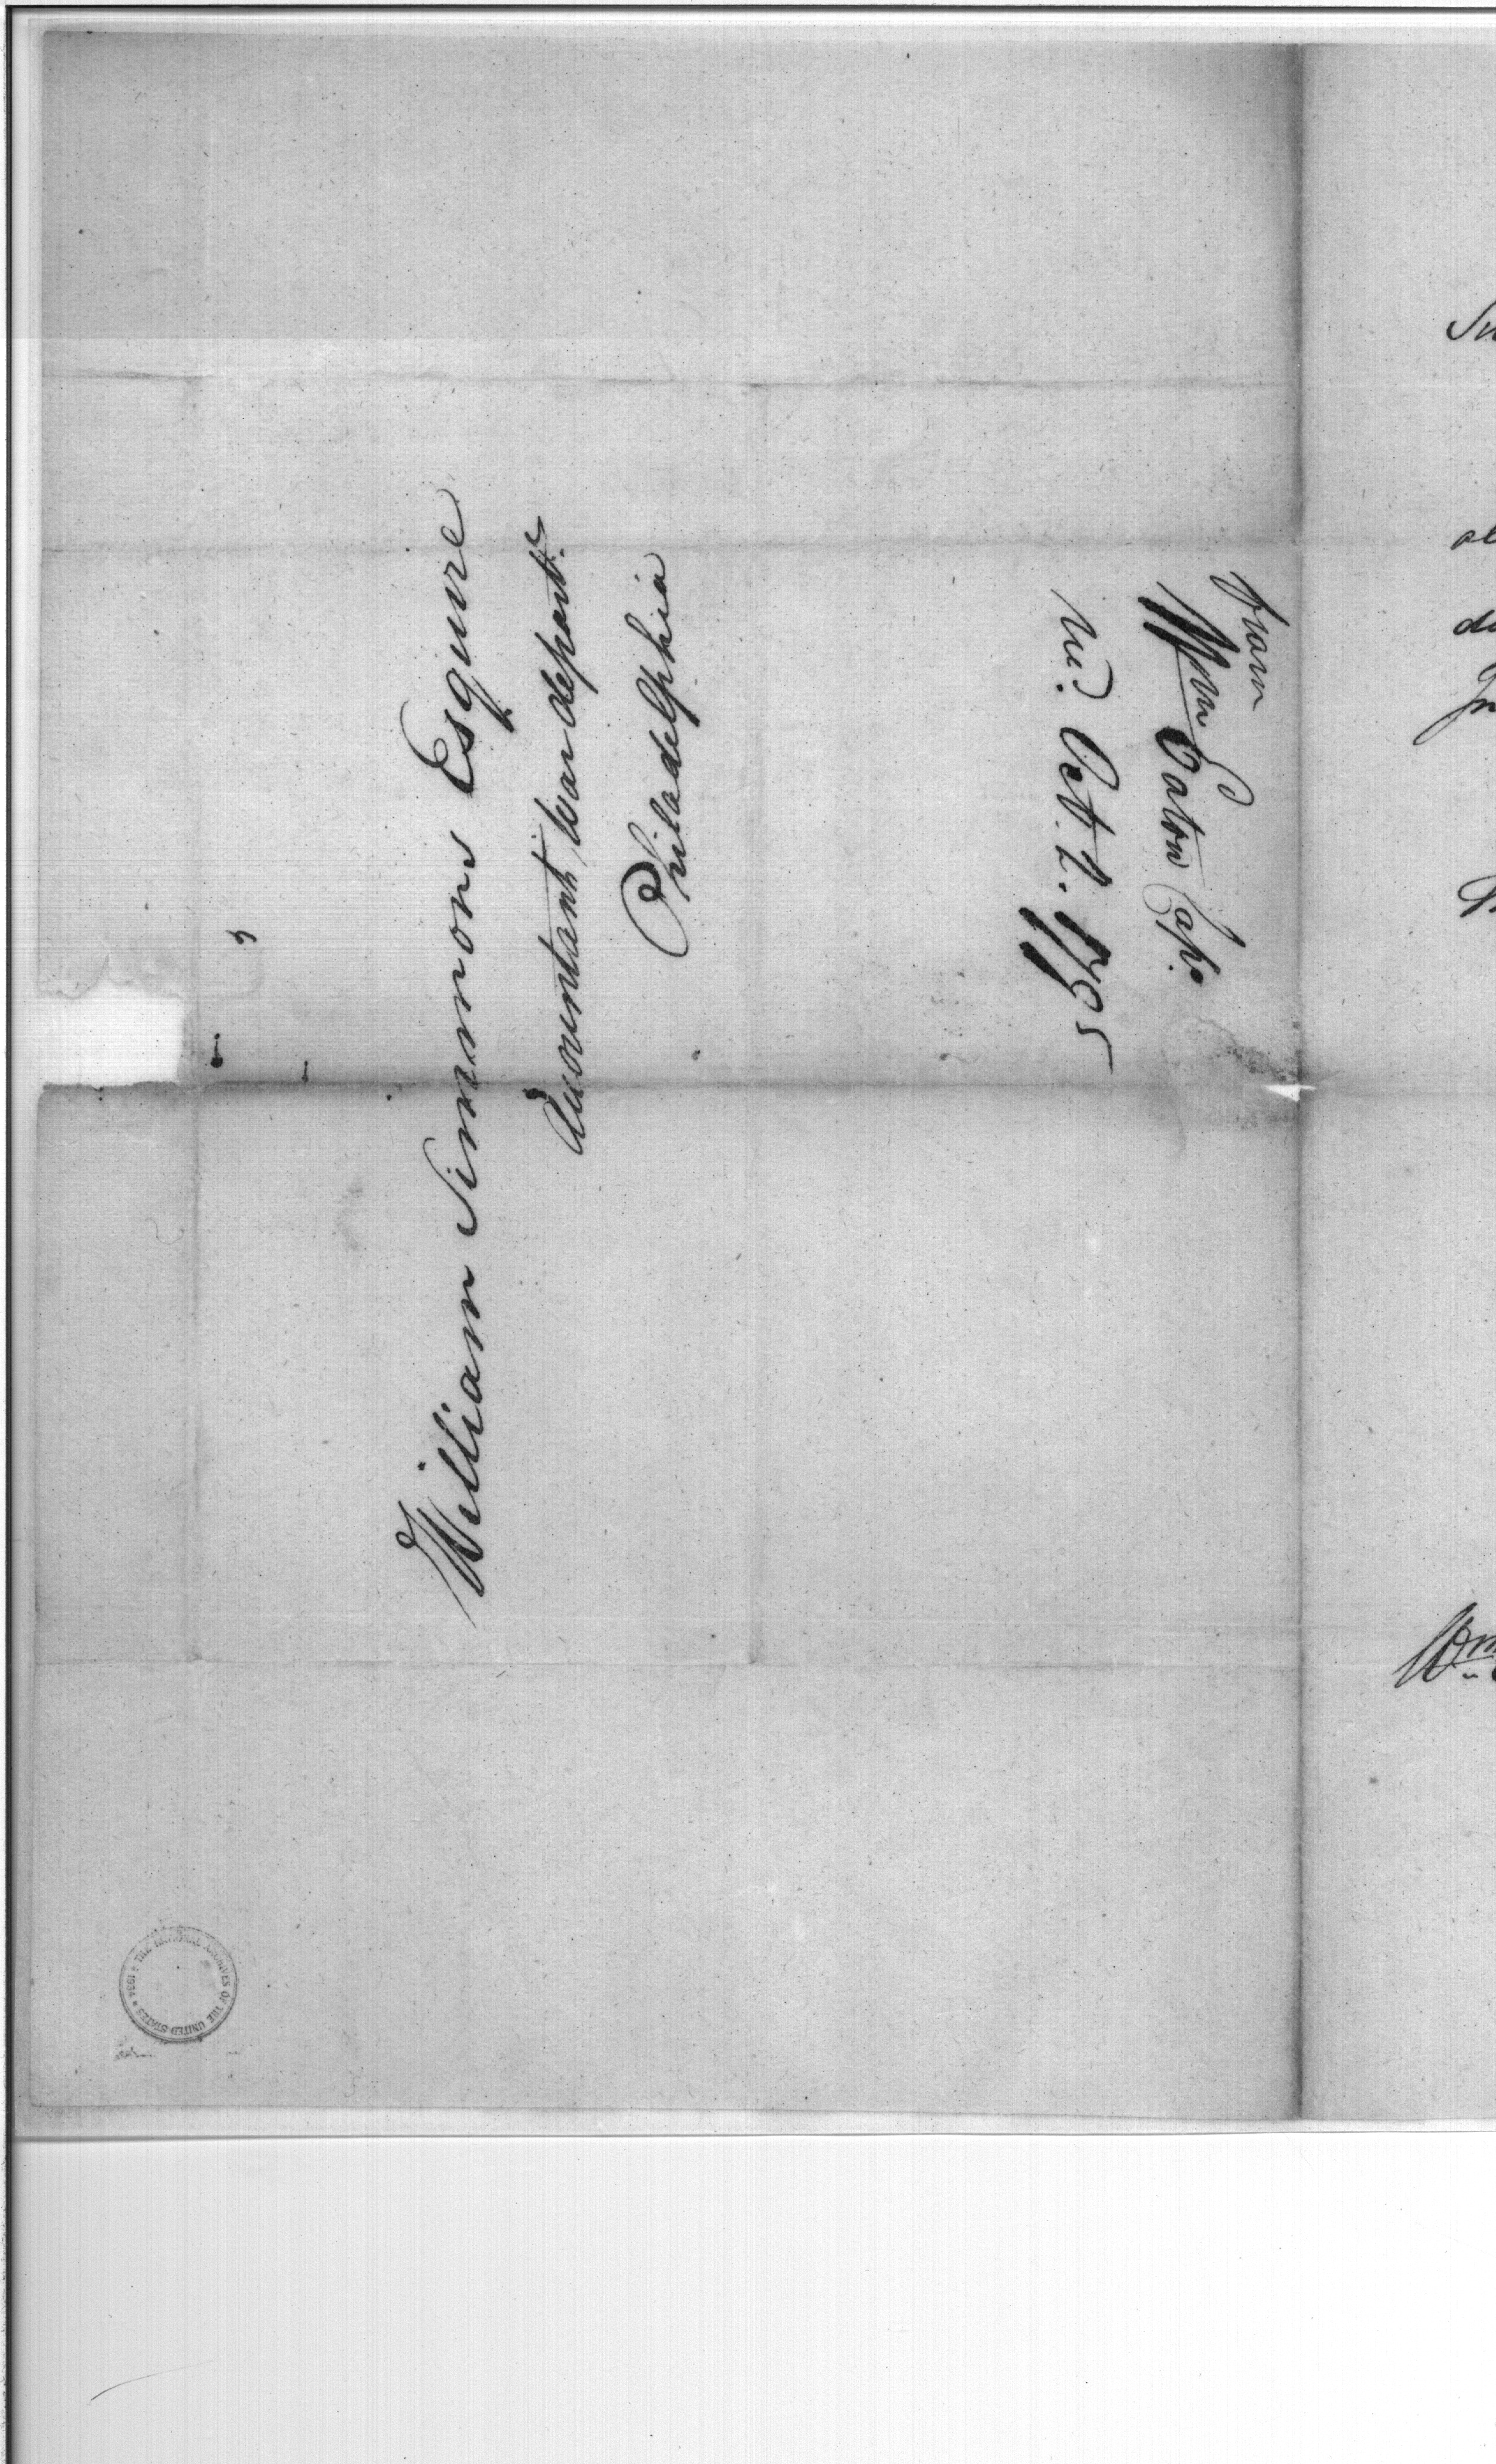 William Simmons Esquire
Accountant, War depart.t
Philadelphia
from
Wm Eaton Capt.
rec.d Oct. 2. 1795
THE NATIONAL ARCHIVES OF THE UNITED STATES * 1934 *
Wm